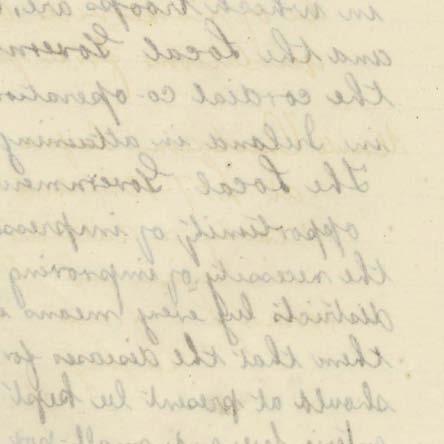 in which troops are,
and the Local Govern
the cordial co-operation
in Ireland in attaining
The Local Governmen
opportunity of impress
the necessity of improving
districts by every means
them that the diseases for
should at present be kept